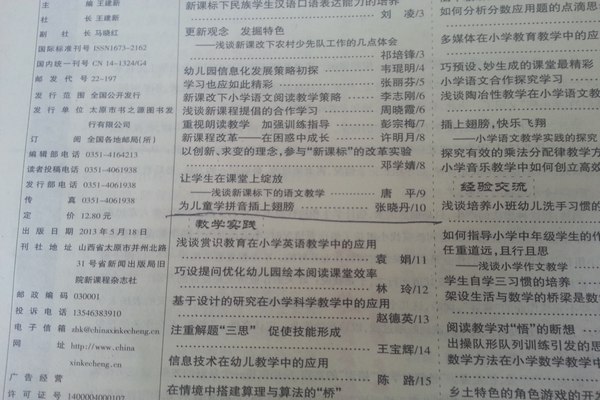 主 编 王建新
社 长 王建新
副 社 长 马晓红
国际标准刊号 ISSN1673-2162
国内统一刊号 CN 14-1324/G4
邮 发 代 号 22-197
发 行 范 围 全国公开发行
发 行 单 位 太原市书之源图书发
行有限公司
订 阅 全国各地邮局(所)
编辑部电话 0351-4164213
读者投稿电话 0351-4061938
发行部电话 0351-4061938
传 真 0351-4061938
定 价 12.80 元
出 版 日 期 2013 年 5 月 18 日
刊 社 地 址 山西省太原市并州北路
31 号省新闻出版局旧
院新课程杂志社
邮 政 编 码 030001
投 诉 电 话 13546383910
电 子 信 箱 zbk@chinaxinkecheng.cn
网 址 http://www.china
xinkecheng.cn
广 告 经 营
许 可 证 号 1400004000107
新课标下民族学生汉语口语表达能力的培养
刘 凌/3
更新观念 发掘特色
——浅谈新课改下农村少先队工作的几点体会
祁培锋/3
幼儿园信息化发展策略初探 韦琨明/4
学习也应如此精彩 张丽芬/5
新课改下小学语文阅读教学策略 李志刚/6
浅谈新课程提倡的合作学习 周晓霞/6
重视朗读教学 加强训练指导 彭宗梅/7
新课程改革——在困惑中成长 许明月/8
以创新、求变的理念,参与“新课标”的改革实验
邓学婧/8
让学生在课堂上绽放
——浅谈新课标下的语文教学 唐 平/9
为儿童学拼音插上翅膀 张晓丹/10
教学实践
浅谈赏识教育在小学英语教学中的应用
袁 娟/11
巧设提问优化幼儿园绘本阅读课堂效率
林 玲/12
基于设计的研究在小学科学教学中的应用
赵德英/13
注重解题“三思” 促使技能形成
王宝辉/14
信息技术在幼儿教学中的应用
陈 路/15
在情境中搭建算理与算法的“桥”
如何分析分数应用题的点滴思
多媒体在小学教育教学中的应
巧预设、妙生成的课堂最精彩
小学语文合作探究学习
浅谈陶冶性教学在小学语文
插上翅膀,快乐飞翔
——小学语文教学实践的探究
探究有效的乘法分配律教学方
小学音乐教学中如何创立高效
经验交流
浅谈培养小班幼儿洗手习惯的
如何指导小学中年级学生的作
任重道远,且行且思
——浅谈小学作文教学
学生自学三习惯的培养
架设生活与数学的桥梁是数
阅读教学对“悟”的断想
出操队形队列训练引发的思
数学方法在小学数学教学中
乡土特色的角色游戏的开发